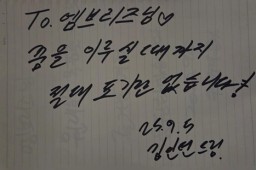 To. 엠브리즈님♡
꿈을 이루실 때까지
절대 포기란 없습니다!
25.9.5
드림.